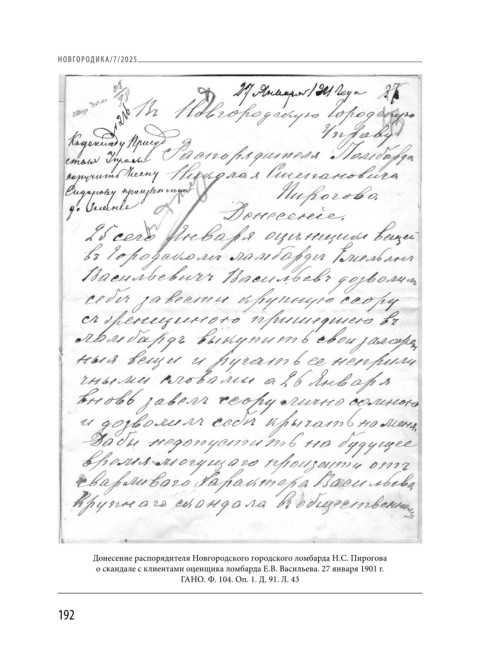 НОВГОРОДИКА/7/2025
27 Января 1901 Года 27
Въ Новгородскую Городскую
Управу
Распорядителя Ломбарда
Николая Степановича
Пирогова
Донесеніе.
25 сего Января оценщикъ вещей
въ Городскомъ ломбардѣ Емельянъ
Васильевичъ Васильевъ дозволилъ
себѣ завести крупную ссору
съ женщиною пришедшею въ
ломбардъ выкупить свои заложен
ныя вещи и ругать ее неприли
чными словами а 26 Января
вновь завелъ ссору лично со мною
и дозволилъ себѣ кричать на меня.
Дабы недопустить на будущее
время могущаго произойти отъ
сварливаго характера Васильева
крупнаго скандала въ общественн
Донесение распорядителя Новгородского городского ломбарда Н.С. Пирогова
о скандале с клиентами оценщика ломбарда Е.В. Васильева. 27 января 1901 г.
ГАНО. Ф. 104. Оп. 1. Д. 91. Л. 43
192